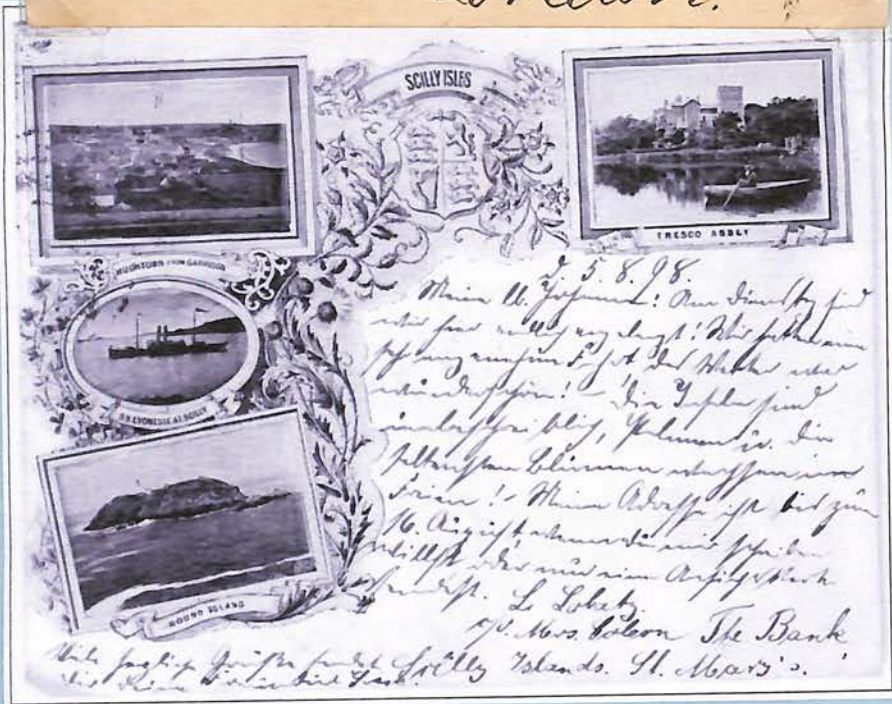 London.
SCILLY ISLES
TRESCO ABBEY
HUGHTOWN FROM GARRISON
S.S. LYONESSE AT SCILLY
ROUND ISLAND
d. 5.8.98.
Meine lb. Johanna! Am Dienstag sind
wir hier endlich angelangt! Wir hatten eine
sehr angenehme Fahrt das Wetter war
wunderschön! – die Inseln sind
unbeschreiblich, Palmen u. die
seltensten Blumen wachsen im
Freien! – Meine Adresse ist bis zum
16. August wenn du mir schreiben
willst oder nur eine Ansichtskarte
sendest. L.
c/o. Mrs. The Bank
Scilly Islands. St. Mary's.
Viele herzliche Grüße sendet
dir deine